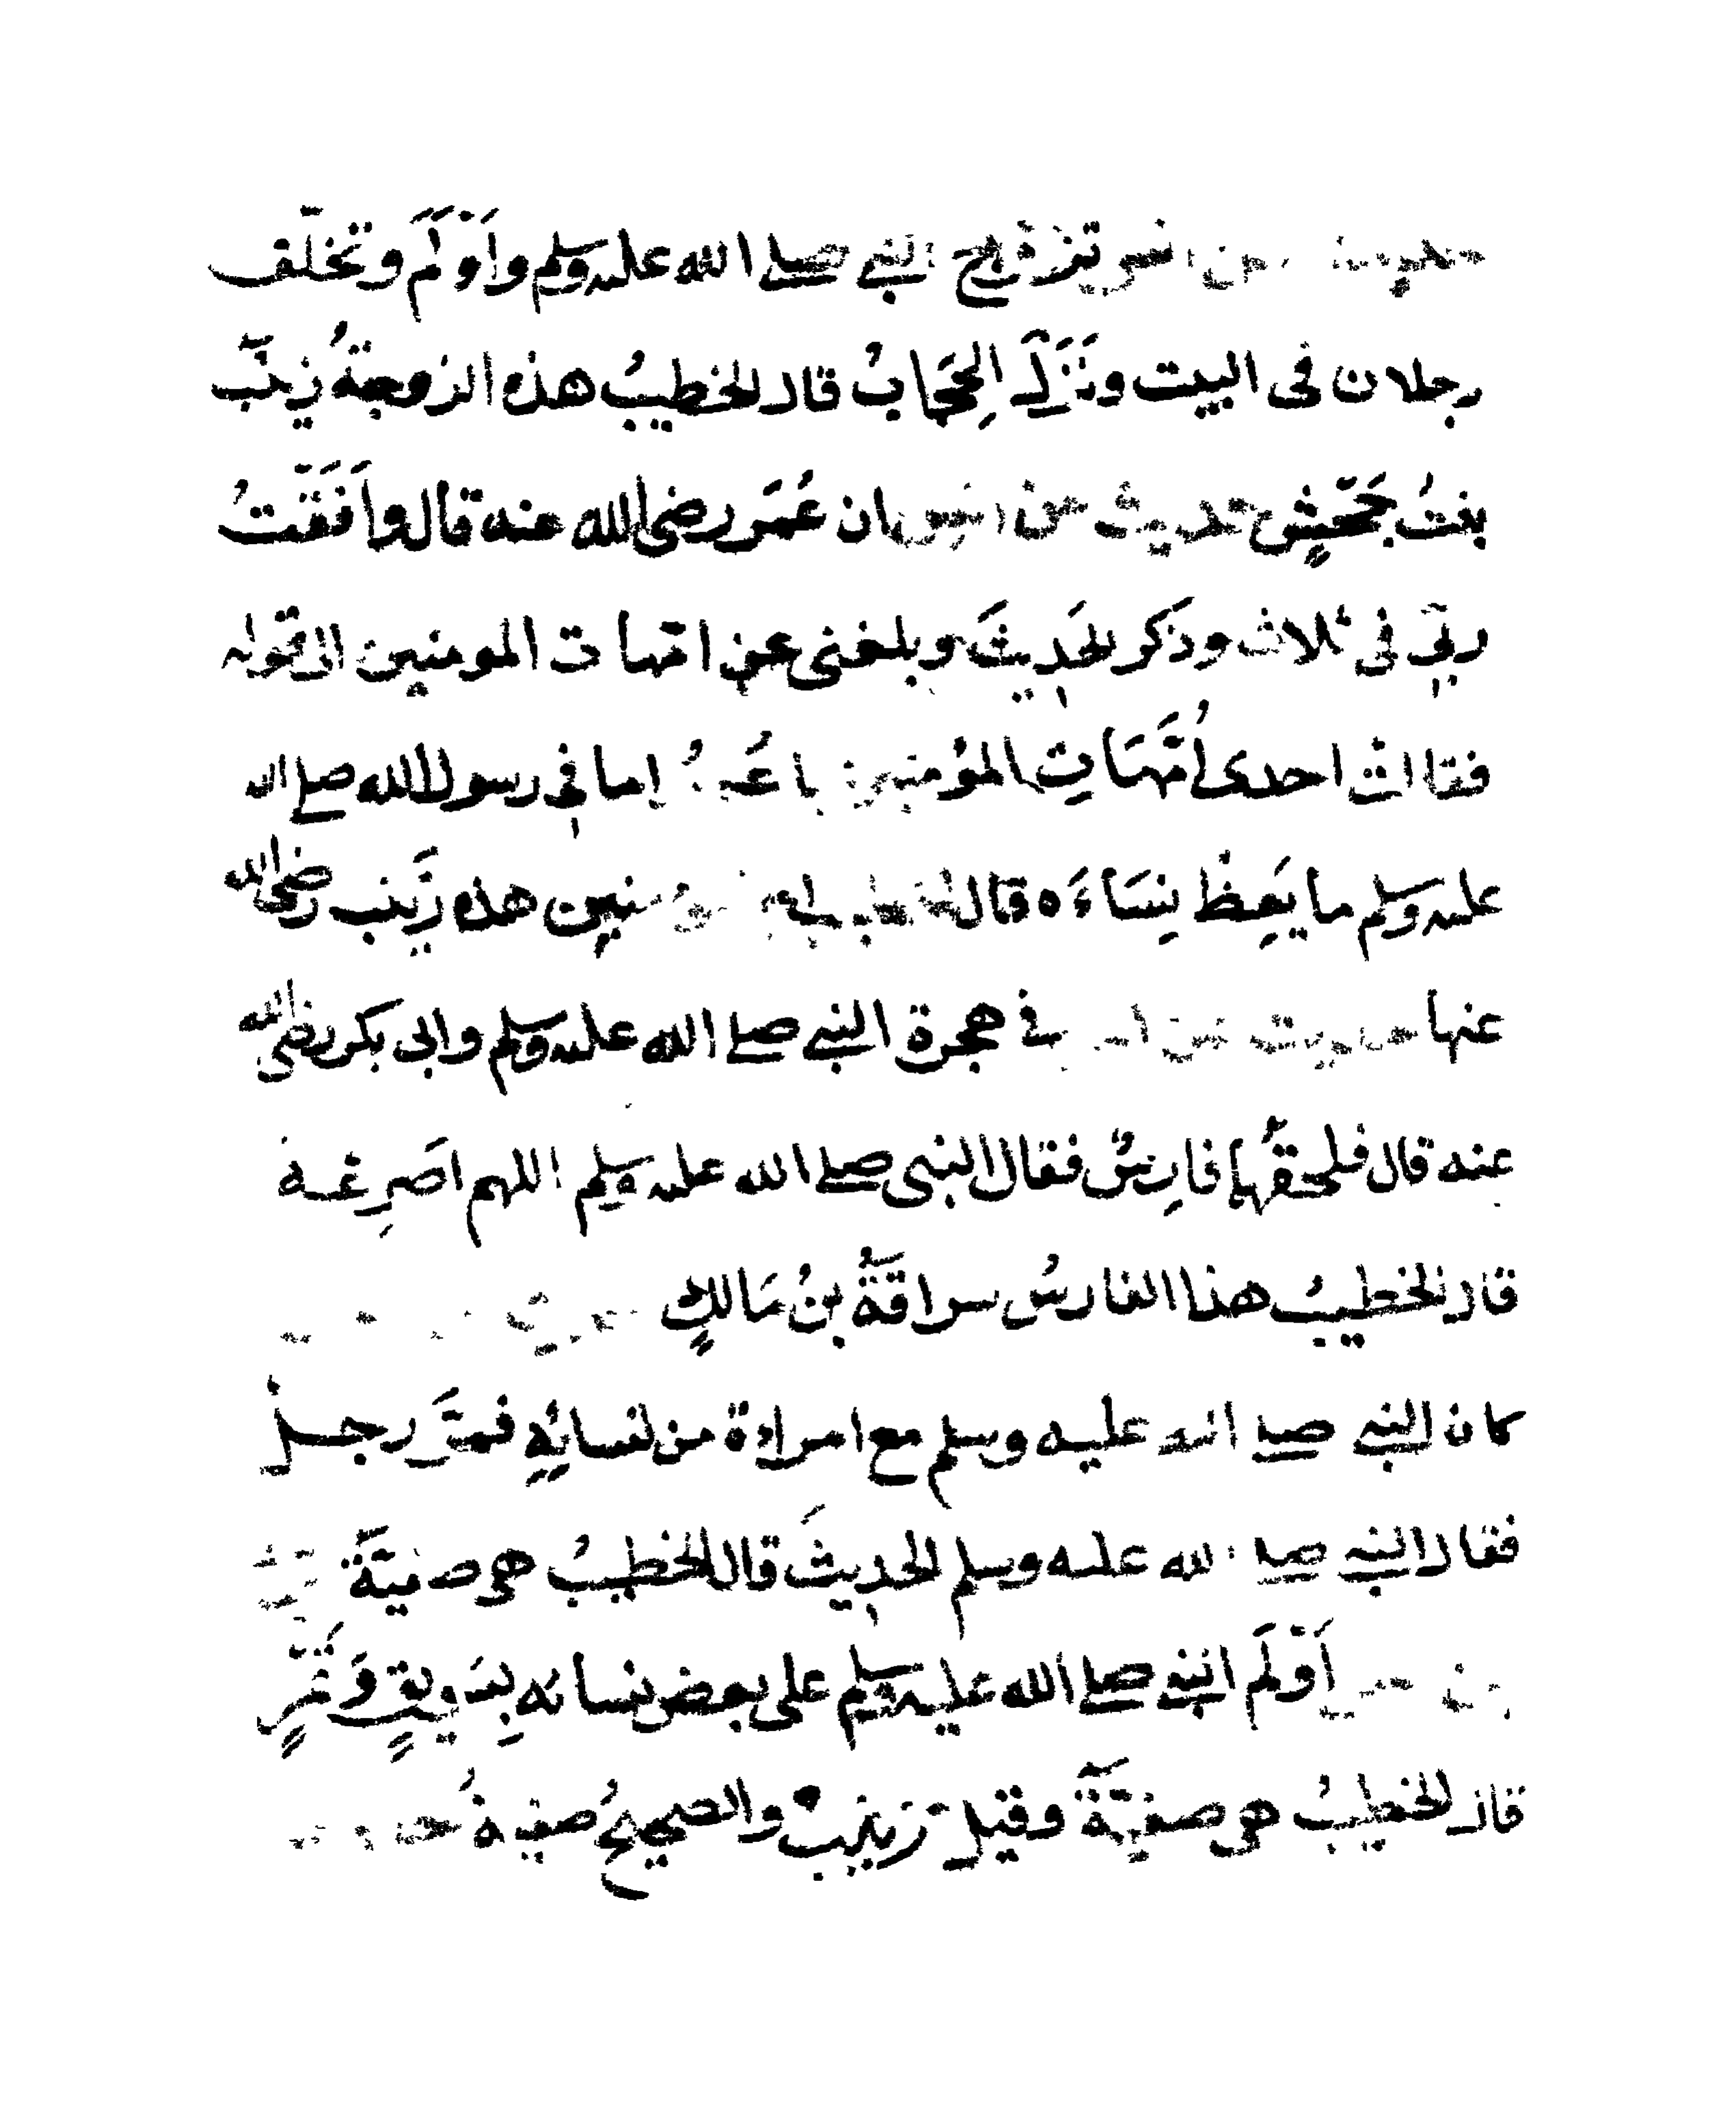 حديث عن انس تزوج النبي صلى الله عليه وسلم وَاَوْلَمَ وتخلّف
رجلان فى البيت ونَزَلَ الحِجَابُ قال الخطيبُ هذه الزوجةُ زينب
بنتُ جَحْشٍ حديث عن انس ان عُمَر رضى الله عنه قال وافَقْتُ
ربّي فى ثلاث وذكر الحَدِيثَ وبلغنى عن امّهات المومنين الى قوله
فقالت احدى اُمَّهَاتِ المؤمنين يا عُمرُ اما فى رسول الله صلى الله
عليه وسلم ما يَعِظُ نِسَاءَه قال الخطيب المؤمنين هذه زَينب رضى الله
عنها حديث عن انس في هجرة النبي صلى الله عليه وسلم وابى بكر رضى الله
عنه قال فلحقهما فارِسٌ فقال النبى صلى الله عليه وسلم اللهم اصَرِعْه
قال الخطيبُ هذا الفارسُ سراقَةُ بنُ مَالكٍ حديث
كان النبي صلى الله عليه وسلم مع امراءة من نسائِهِ فمَرَّ رجل
فقال النبي صلى الله عليه وسلم الحديثَ قال الخطيبُ هى صفيَّةُ
أَوْلَم النبي صلى الله عليه وسلم على بعض نسائه بِسَويقٍ وَتَمْرٍ
قال الخطيبُ هى صفيّةُ وقيل زينبُ والصحيحُ صفيةُ